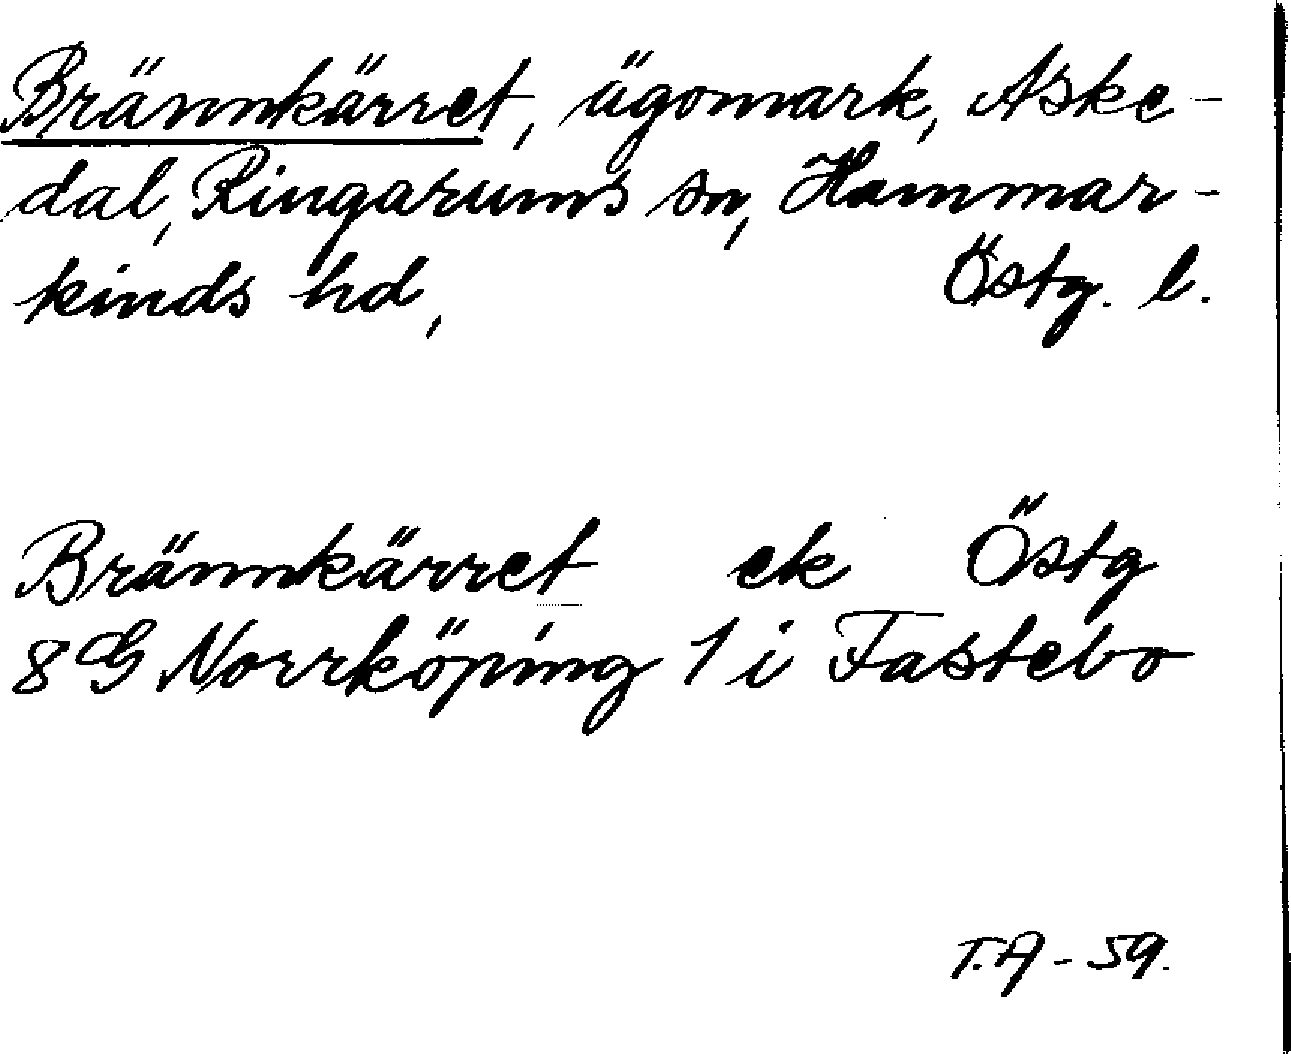 Brännkärret, ägomark, Aske-
dal, Ringarums sn, Hammar-
kinds hd, Östg. l.
Brännkärret ek Östg
8 G Norrköping 1 i Fastebo
T.A - 59.